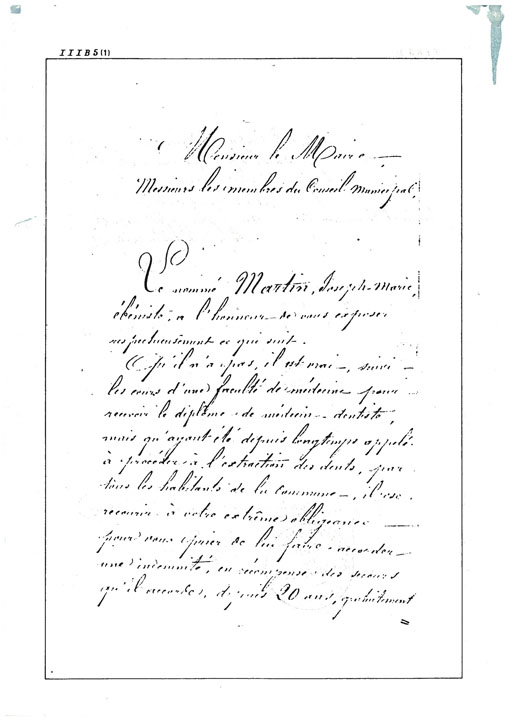 IIIB5(1)
Monsieur le Maire
Messieurs les membres du Conseil Municipal,
Le nommé Martin, Joseph-Marie,
ébéniste, a l'honneur de vous exposer
respectueusement ce qui suit.
Qu'il n'a pas, il est vrai, suivi
les cours d'une faculté de médecine pour
recevoir le diplôme de médecin-dentiste,
mais qu'ayant été depuis longtemps appelé
à procéder à l'extraction des dents, par
tous les habitants de la commune, il ose
recourir à votre extrême obligeance
pour vous prier de lui faire accorder
une indemnité, en récompense des secours
qu'il accorde, depuis 20 ans, gratuitement
=